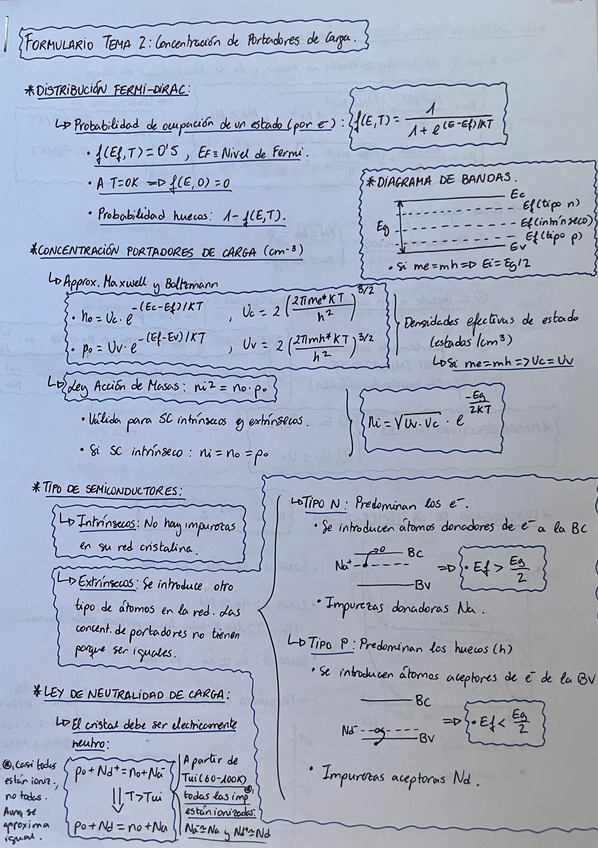 FORMULARIO TEMA 2: Concentración de Portadores de Carga.
* DISTRIBUCIÓN FERMI-DIRAC:
↳ Probabilidad de ocupación de un estado (por e⁻): f(E,T) = 1 / (1 + e^((E-Ef)/KT))
• f(Ef,T) = 0'5 , EF ≡ Nivel de Fermi.
• A T=0K ⇒ f(E,0) = 0
• Probabilidad huecos: 1 - f(E,T).
* DIAGRAMA DE BANDAS.
Ec
Ef (tipo n)
Eg
Ef (intrínseco)
Ef (tipo p)
Ev
• Si me=mh ⇒ Ei = Eg/2
* CONCENTRACIÓN PORTADORES DE CARGA (cm⁻³)
↳ Approx. Maxwell y Boltzmann
• no = Uc · e^(-(Ec-Ef)/KT) , Uc = 2 (2πme*KT / h²)^(3/2)
• po = Uv · e^(-(Ef-Ev)/KT) , Uv = 2 (2πmh*KT / h²)^(3/2)
Densidades efectivas de estado
(estados/cm³)
↳ Si me=mh ⇒ Uc = Uv
↳ Ley Acción de Masas: ni² = no · po
• Válida para SC intrínsecos y extrínsecos.
• Si SC intrínseco: ni = no = po
ni = √(Uv · Uc) · e^(-Eg/2KT)
* TIPO DE SEMICONDUCTORES:
↳ Intrínsecos: No hay impurezas
en su red cristalina.
↳ Extrínsecos: Se introduce otro
tipo de átomos en la red. Las
concent. de portadores no tienen
porque ser iguales.
↳ TIPO N: Predominan los e⁻.
• Se introducen átomos donadores de e⁻ a la BC
BC
Na⁺
BV
⇒ • Ef > Eg/2
• Impurezas donadoras Na.
↳ TIPO P: Predominan los huecos (h)
• Se introducen átomos aceptores de e⁻ de la BV
BC
Nd⁻
BV
⇒ • Ef < Eg/2
• Impurezas aceptoras Nd.
* LEY DE NEUTRALIDAD DE CARGA:
↳ El cristal debe ser electricamente
neutro:
po + Nd⁺ = no + Na⁻
⇓ T > Tui
po + Nd = no + Na
A partir de
Tui (60-100K)
todas las imp⊛
están ionizadas.
Na⁻ ≃ Na y Nd⁺ ≃ Nd
⊛, Casi todas
están ioniz.,
no todas.
Aunq se
aproxima
igual.